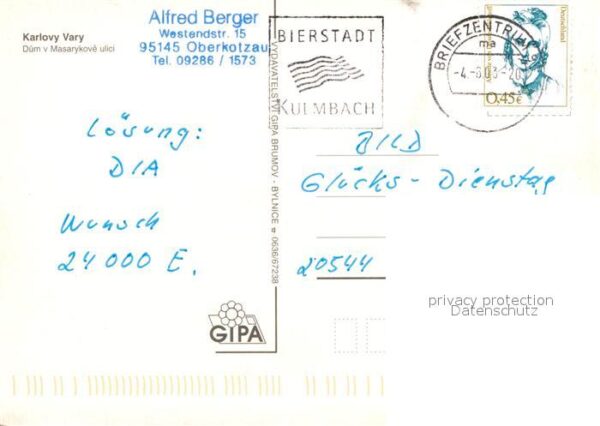 Karlovy Vary
Dům v Masarykově ulici
Alfred Berger
Westendstr. 15
95145 Oberkotzau
Tel. 09286 / 1573
BIERSTADT
KULMBACH
BRIEFZENTRUM
ma
-4.-6.03-20
Deutschland
0,45€
VYDAVATELSTVÍ GIPA BRUMOV - BYLNICE ☎ 0636/67238
Lösung:
DIA
Wunsch
24 000 E.
BILD
Glücks - Dienstag
20544
privacy protection
Datenschutz
GIPA